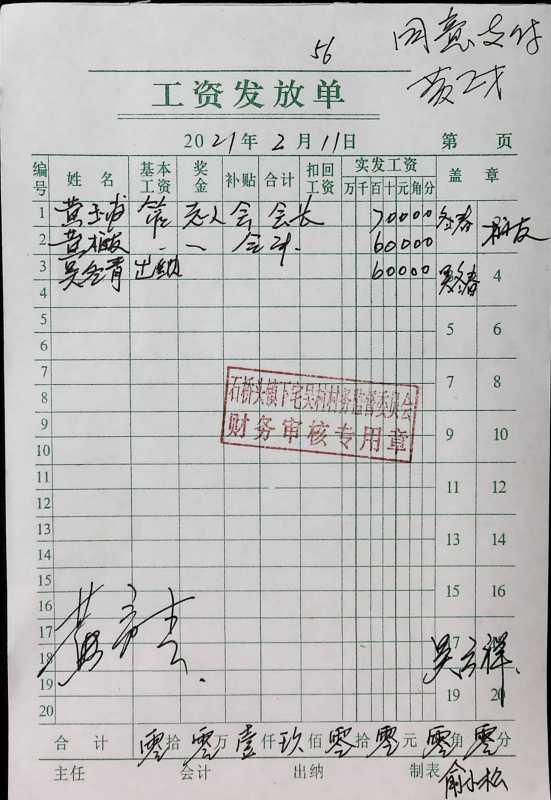 56
同意支付
工资发放单
2021年2月11日 第 页
编号 姓名 基本工资 奖金 补贴 合计 扣回工资 实发工资 盖章
万千百十元角分
1 黄 老人会 会长 70000
2 黄 会计 60000
3 吴 出纳 60000
4 4
5 5 6
6
7 7 8
8
9 9 10
10
11 11 12
12
13 13 14
14
15 15 16
16
17 17
18 18
19 19 20
20
石桥头镇下宅吴村村务监督委员会
财务审核专用章
吴云祥
合计 零拾零万壹仟玖佰零拾零元零角零分
主任 会计 出纳 制表 俞小松